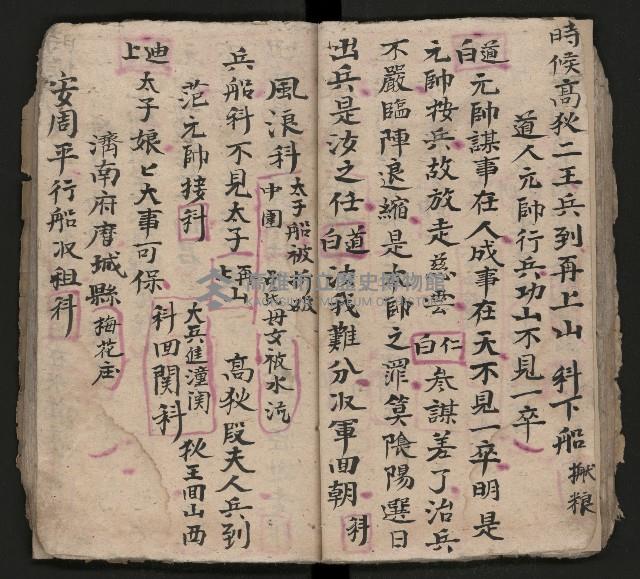 時候高狄二王兵到再上山 科下船 揪粮
道人元帥行兵功山不見一卒
道白 元帥謀事在人成事在天不見一卒明是
元帥按兵故放走慈雲 仁白 叅謀差了治兵
不嚴臨陣退縮是本帥之罪算陰陽選日
出兵是汝之任 道白 我難分収軍回朝 科
風浪科 太子船被 中圍 氏母女被水流
兵船科不見太子 再上山 高狄段夫人兵到
范元帥接科 大兵進潼関 狄王回山西
迪上 太子娘匕大事可保 科回関科
濟南府厝城縣 梅花庄
安周平行船収租科
高雄市立歷史博物館
KAOHSIUNG MUSEUM OF HISTORY